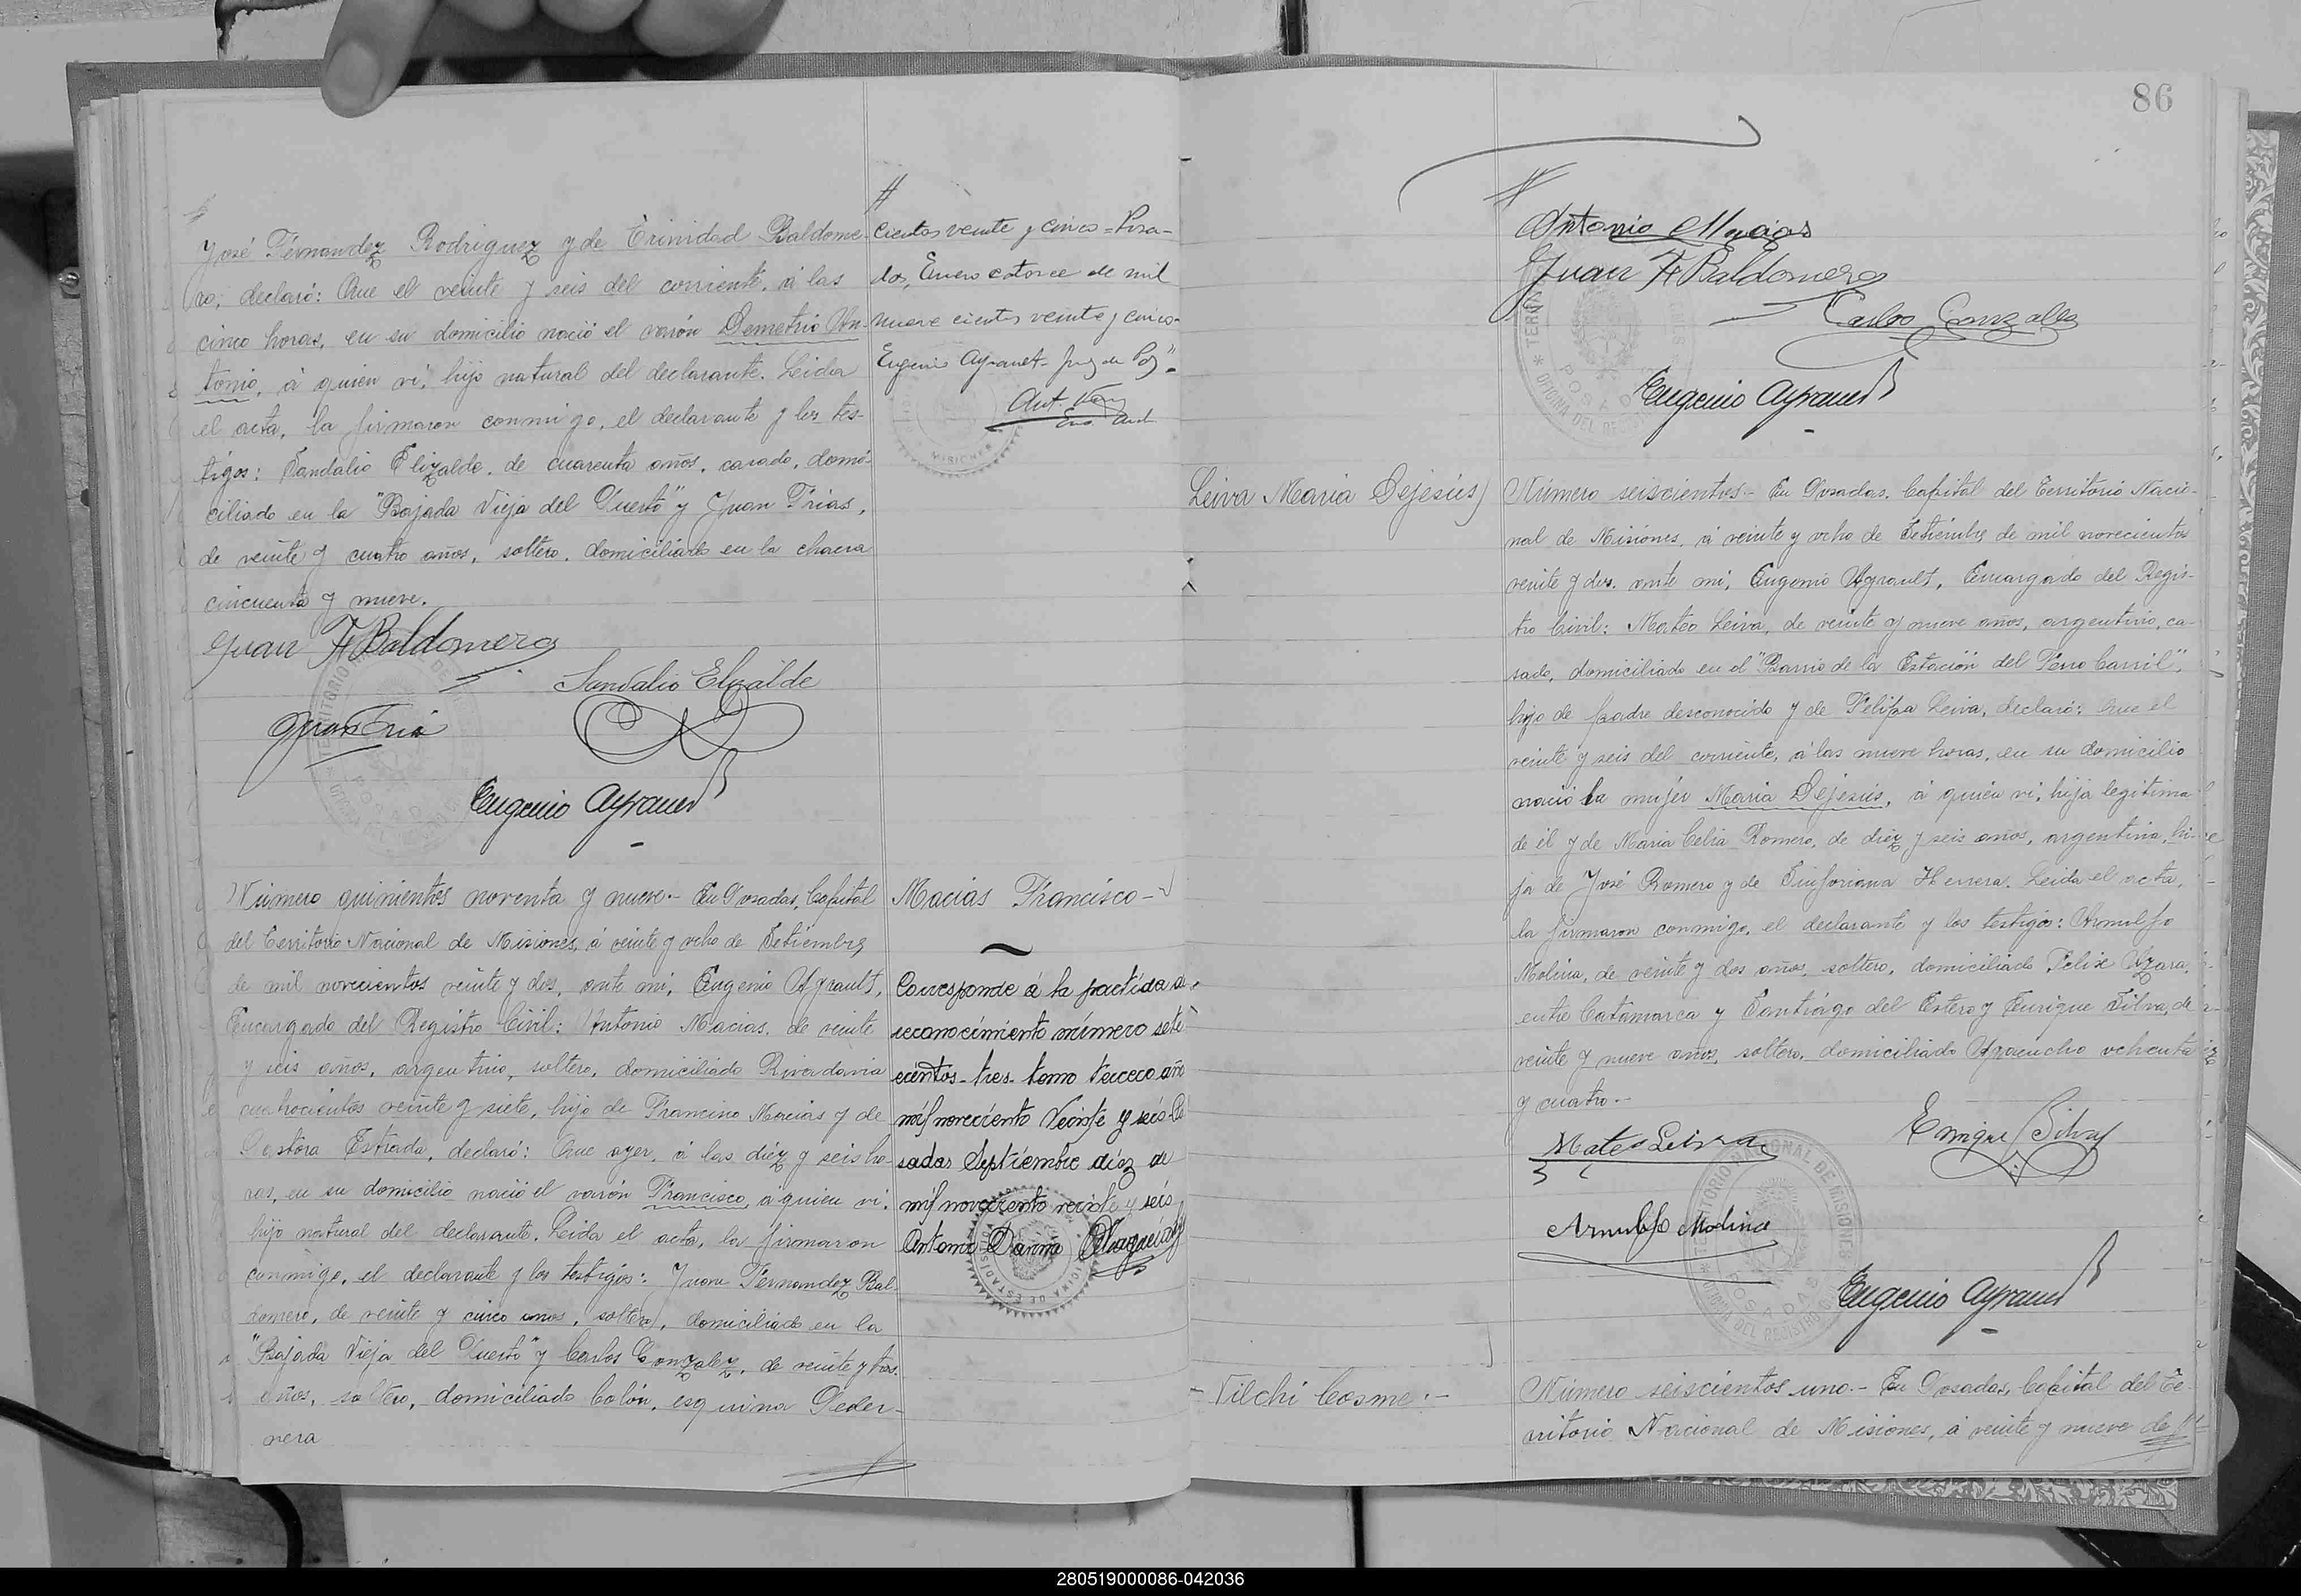 José Fernandez Rodriguez y de Trinidad Baldome-
ro, declaró: Que el veinte y seis del corriente, á las
cinco horas, en su domicilio nació el varón Demetrio An-
tonio, á quien vi, hijo natural del declarante. Leida
el acta, la firmaron conmigo, el declarante y los tes-
tigos: Sandalio Elizalde, de cuarenta años, casado, domi-
ciliado en la "Bajada Vieja del Puerto" y Juan Frias,
de veinte y cuatro años, soltero, domiciliado en la chacra
cincuenta y nueve.
Juan F Baldomero
Sandalio Elizalde
Juan Fria
Eugenio Ayrault
cientos veinte y cinco = Posa-
das, Enero catorce de mil
nueve cientos veinte y cinco-
Eugenio Ayrault - Juez de Paz".
Número quinientos noventa y nueve.- En Posadas, Capital
del Territorio Nacional de Misiones, á veinte y ocho de Setiembre
de mil novecientos veinte y dos, ante mi, Eugenio Ayrault,
Encargado del Registro Civil: Antonio Macias, de veinte
y seis años, argentino, soltero, domiciliado Rivadavia
cuatrocientos veinte y siete, hijo de Francisco Macias y de
Pastora Estrada, declaró: Que ayer, á las diéz y seis ho-
ras, en su domicilio nació el varón Francisco, á quien vi,
hijo natural del declarante. Leida el acta, la firmaron
conmigo, el declarante y los testigos: Juan Fernandez Bal-
domero, de veinte y cinco años, soltero, domiciliado en la
"Bajada Vieja del Puerto" y Carlos Gonzalez, de veinte y tres
años, soltero, domiciliado Colón, esquina Peder-
nera
Macias Francisco -
Corresponde á la partida de
reconocimiento número sete
cientos - tres - tomo tercero año
mil noveciento veinte y seis - Po
sadas Septiembre diez de
mil novecientos veinte y seis
Antonio
86
Antonio Macias
Juan F Baldomero
Carlos Gonzalez
Eugenio Ayrault
Leiva Maria Dejesús
Número seiscientos.- En Posadas, Capital del Territorio Nacio-
nal de Misiones, á veinte y ocho de Setiembre de mil novecientos
veinte y dos, ante mi, Eugenio Ayrault, Encargado del Regis-
tro Civil: Mateo Leiva, de veinte y nueve años, argentino, ca-
sado, domiciliado en el "Barrio de la Estación del Ferro Carril",
hijo de padre desconocido y de Felipa Leiva, declaró: Que el
veinte y seis del corriente, á las nueve horas, en su domicilio
nació la mujér Maria Dejesús, á quien vi, hija legitima
de él y de Maria Celia Romero, de diéz y seis años, argentina, hi-
ja de José Romero y de Sinforiana Herrera. Leida el acta,
la firmaron conmigo, el declarante y los testigos: Arnulfo
Molina, de veinte y dos años, soltero, domiciliado Felix Azara,
entre Catamarca y Santiágo del Estero y Enrique Silva, de
veinte y nueve años, soltero, domiciliado Ayacucho ochenta
y cuatro.-
Mateo Leiva
Enrique Silva
Arnulfo Molina
Eugenio Ayrault
TERRITORIO NACIONAL DE MISIONES
OFICINA DEL REGISTRO CIVIL
POSADAS
- Vilchi Cosme:-
Número seiscientos uno.- En Posadas, Capital del Te-
rritorio Nacional de Misiones, á veinte y nueve de
280519000086-042036